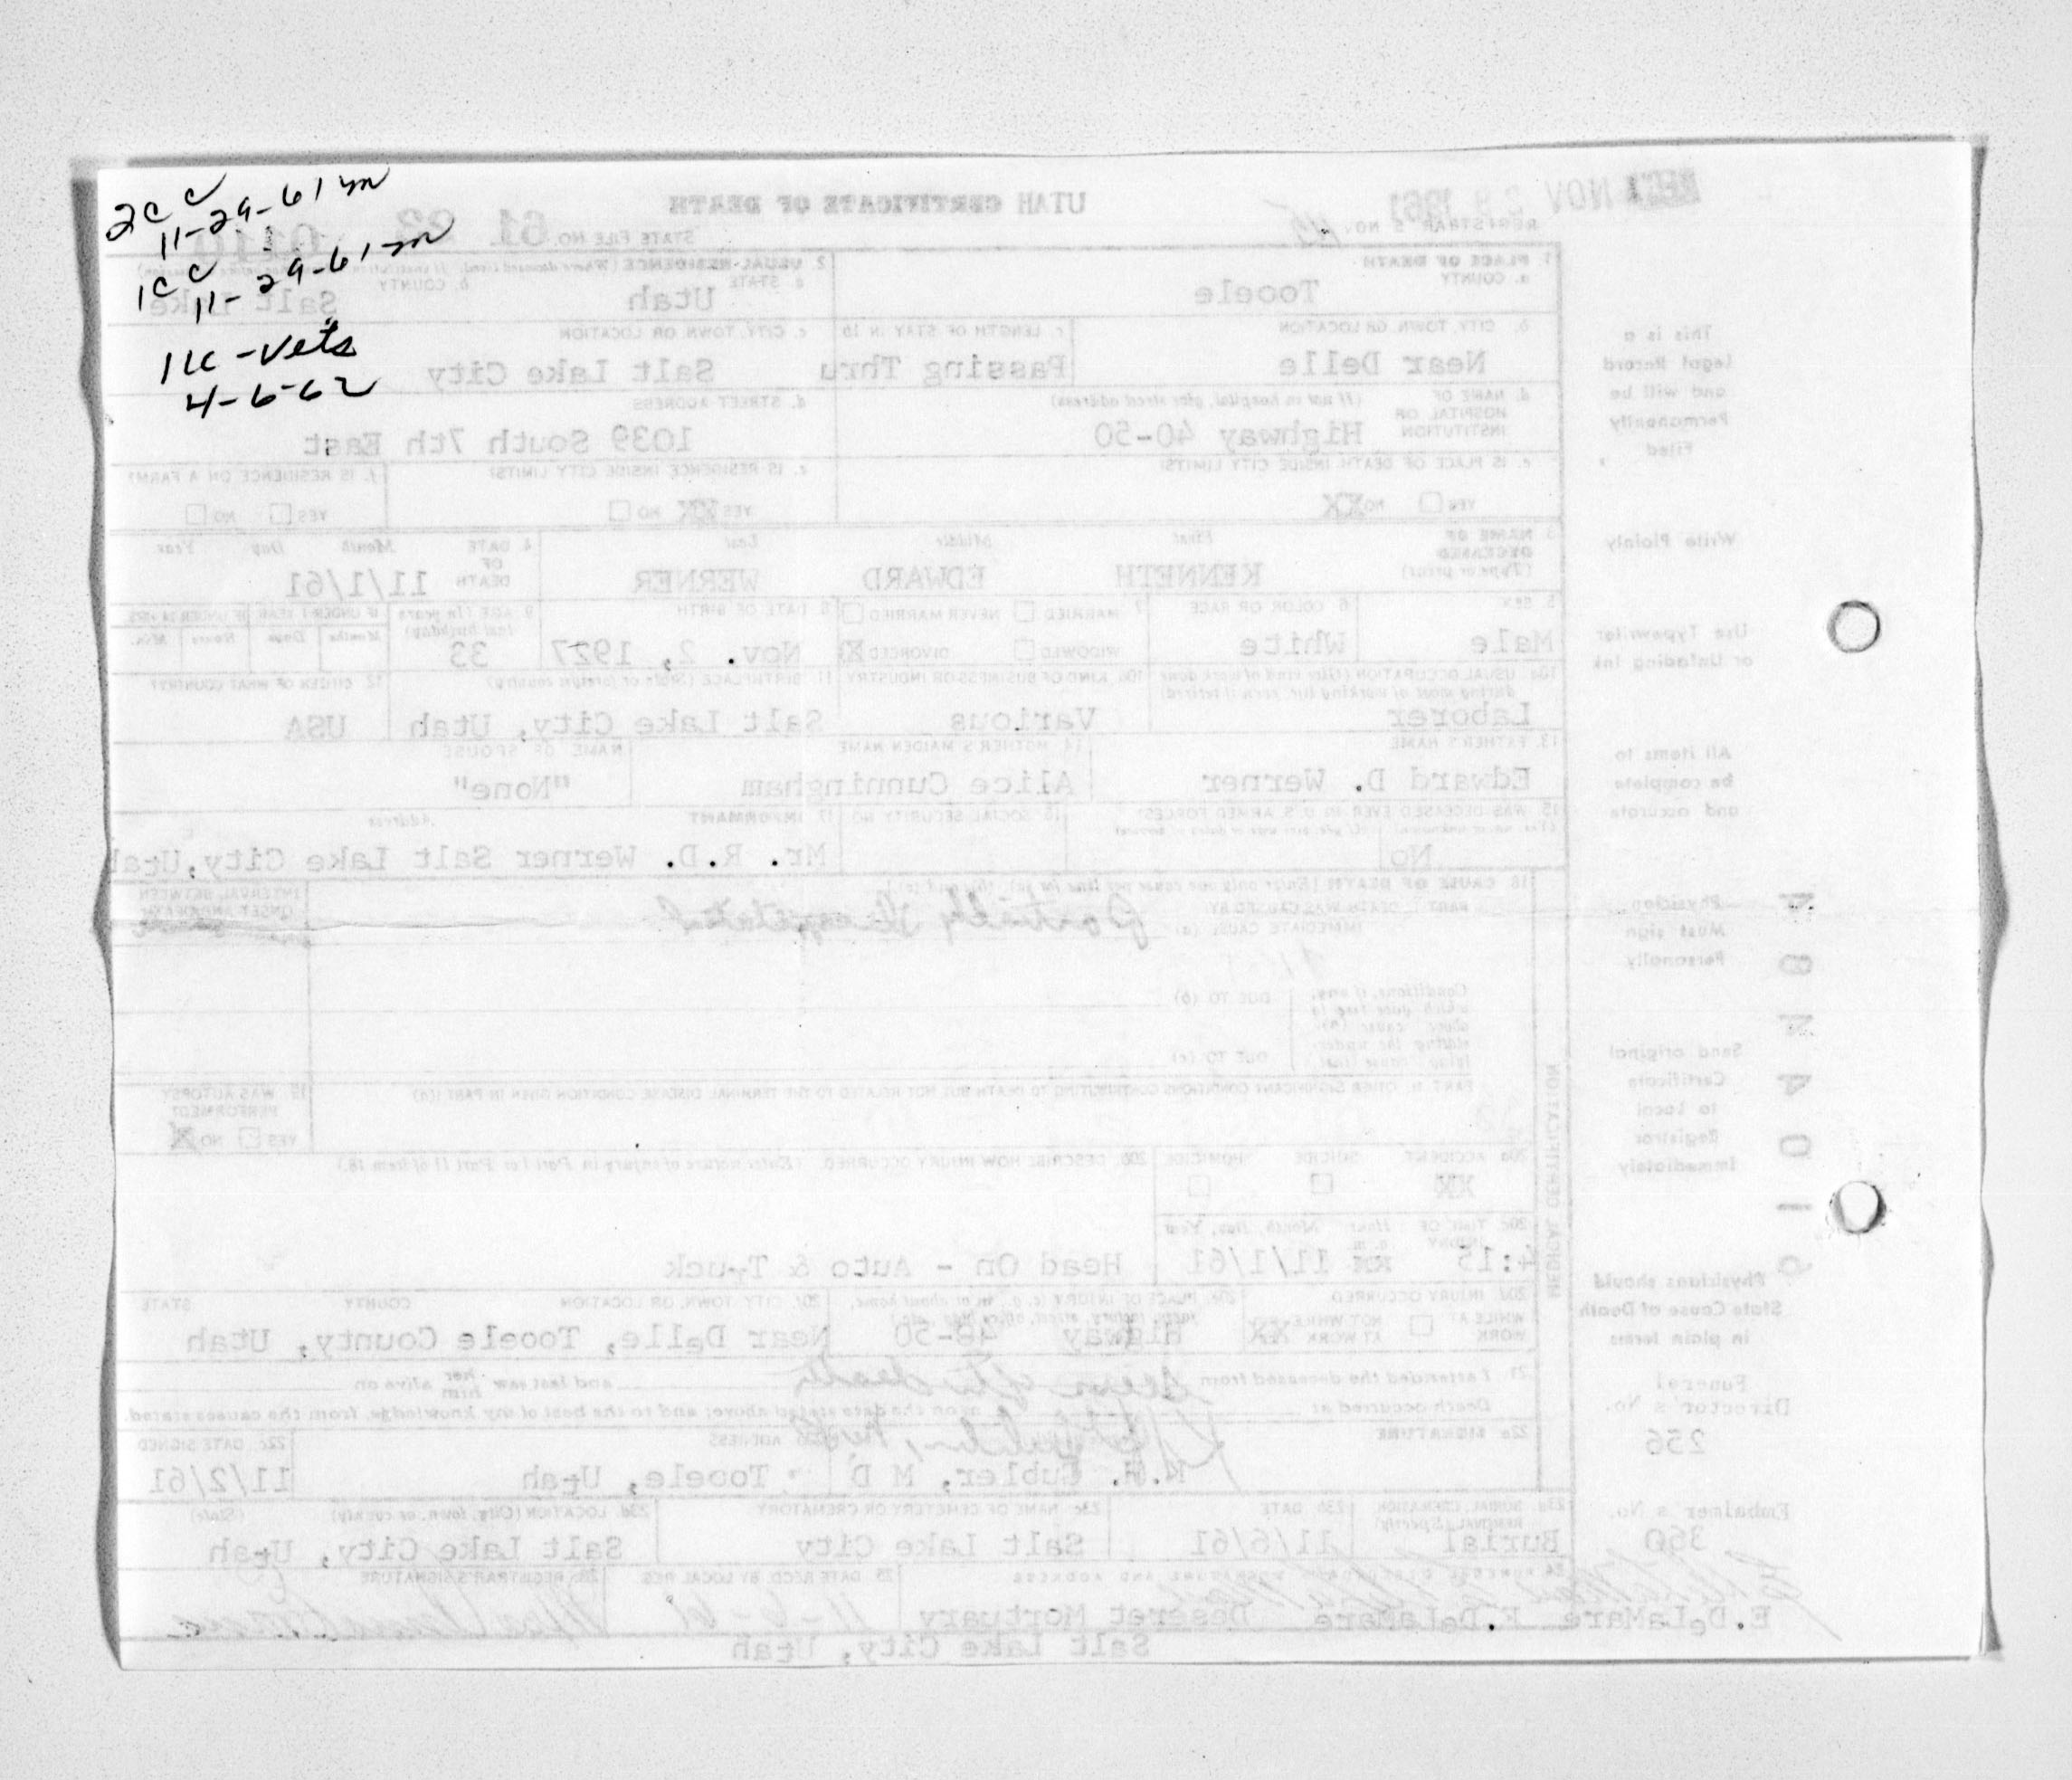 2cc
11-29-61 ym
1cc
11-29-61 ym
1cc-vets
4-6-62
REC'D NOV 28 1961
UTAH CERTIFICATE OF DEATH
REGISTRAR'S NO.
STATE FILE NO. 61 23
1. PLACE OF DEATH
a. COUNTY
Tooele
2. USUAL RESIDENCE (Where deceased lived.
a. STATE
Utah
b. COUNTY
Salt Lake
b. CITY, TOWN, OR LOCATION
Near Delle
c. LENGTH OF STAY IN 1b
Passing Thru
c. CITY, TOWN OR LOCATION
Salt Lake City
d. NAME OF HOSPITAL OR INSTITUTION (If not in hospital, give street address)
Highway 40-50
d. STREET ADDRESS
1039 South 7th East
e. IS PLACE OF DEATH INSIDE CITY LIMITS?
YES NO XX
e. IS RESIDENCE INSIDE CITY LIMITS?
YES XX NO
f. IS RESIDENCE ON A FARM?
YES NO
3. NAME OF DECEASED (Type or print)
First Middle Last
KENNETH EDWARD WERNER
4. DATE OF DEATH
Month Day Year
11/1/61
5. SEX
Male
6. COLOR OR RACE
White
7. MARRIED NEVER MARRIED
WIDOWED DIVORCED X
8. DATE OF BIRTH
Nov. 2, 1927
9. AGE (In years last birthday)
33
IF UNDER 1 YEAR IF UNDER 24 HRS.
Months Days Hours Min.
10a. USUAL OCCUPATION (Give kind of work done during most of working life, even if retired)
Laborer
10b. KIND OF BUSINESS OR INDUSTRY
Various
11. BIRTHPLACE (State or foreign country)
Salt Lake City, Utah
12. CITIZEN OF WHAT COUNTRY?
USA
13. FATHER'S NAME
Edward D. Werner
14. MOTHER'S MAIDEN NAME
Alice Cunningham
NAME OF SPOUSE
"None"
15. WAS DECEASED EVER IN U.S. ARMED FORCES?
No
16. SOCIAL SECURITY NO.
17. INFORMANT Address
Mr. R.D. Werner Salt Lake City, Utah
18. CAUSE OF DEATH [Enter only one cause per line for (a), (b), and (c).]
PART I. DEATH WAS CAUSED BY:
IMMEDIATE CAUSE (a)
Partially Decapitated
INTERVAL BETWEEN ONSET AND DEATH
Conditions, if any, which gave rise to above cause (a), stating the underlying cause last.
DUE TO (b)
DUE TO (c)
PART II. OTHER SIGNIFICANT CONDITIONS CONTRIBUTING TO DEATH BUT NOT RELATED TO THE TERMINAL DISEASE CONDITION GIVEN IN PART I(a)
19. WAS AUTOPSY PERFORMED?
YES NO X
MEDICAL CERTIFICATION
20a. ACCIDENT SUICIDE HOMICIDE
XX
20b. DESCRIBE HOW INJURY OCCURRED. (Enter nature of injury in Part I or Part II of item 18.)
Head On - Auto & Truck
20c. TIME OF INJURY Hour Month, Day, Year
4:15 11/1/61
20d. INJURY OCCURRED
WHILE AT WORK NOT WHILE AT WORK XX
20e. PLACE OF INJURY (e.g., in or about home, farm, factory, street, office bldg., etc.)
Higway 40-50
20f. CITY, TOWN, OR LOCATION COUNTY STATE
Near Delle, Tooele County, Utah
21. I attended the deceased from Seen after death and last saw her him alive on
Death occurred at m on the date stated above; and to the best of my knowledge, from the causes stated.
22a. SIGNATURE
K.H. Gubler, M D
22b. ADDRESS
Tooele, Utah
22c. DATE SIGNED
11/2/61
23a. BURIAL, CREMATION REMOVAL (Specify)
Burial
23b. DATE
11/6/61
23c. NAME OF CEMETERY OR CREMATORY
Salt Lake City
23d. LOCATION (City, town, or county) (State)
Salt Lake City, Utah
24. FUNERAL DIRECTOR'S SIGNATURE AND ADDRESS
E.DeLaMare F.DeLaMare Deseret Mortuary
Salt Lake City, Utah
25. DATE RECD. BY LOCAL REG.
11-6-61
26. REGISTRAR'S SIGNATURE
This is a
Legal Record
and will be
Permanently
Filed
Write Plainly
Use Typewriter
or Unfading Ink
All items to
be complete
and accurate
Physician
Must sign
Personally
Send original
Certificate
to Local
Registrar
Immediately
Physicians should
State Cause of Death
in plain terms
Funeral
Director's No.
256
Embalmer's No.
360